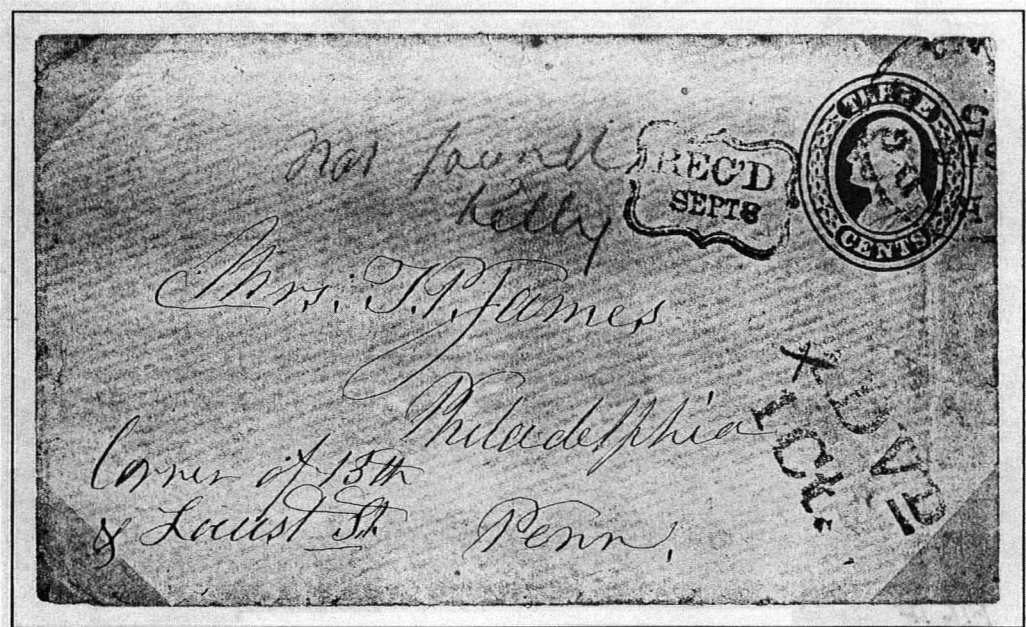 Not found
Kelly
REC'D
SEPT 8
THREE
CENTS
Mrs. T.P. James
Philadelphia
Corner of 15th
& Locust St
Penn.
ADV'D
1 Ct.